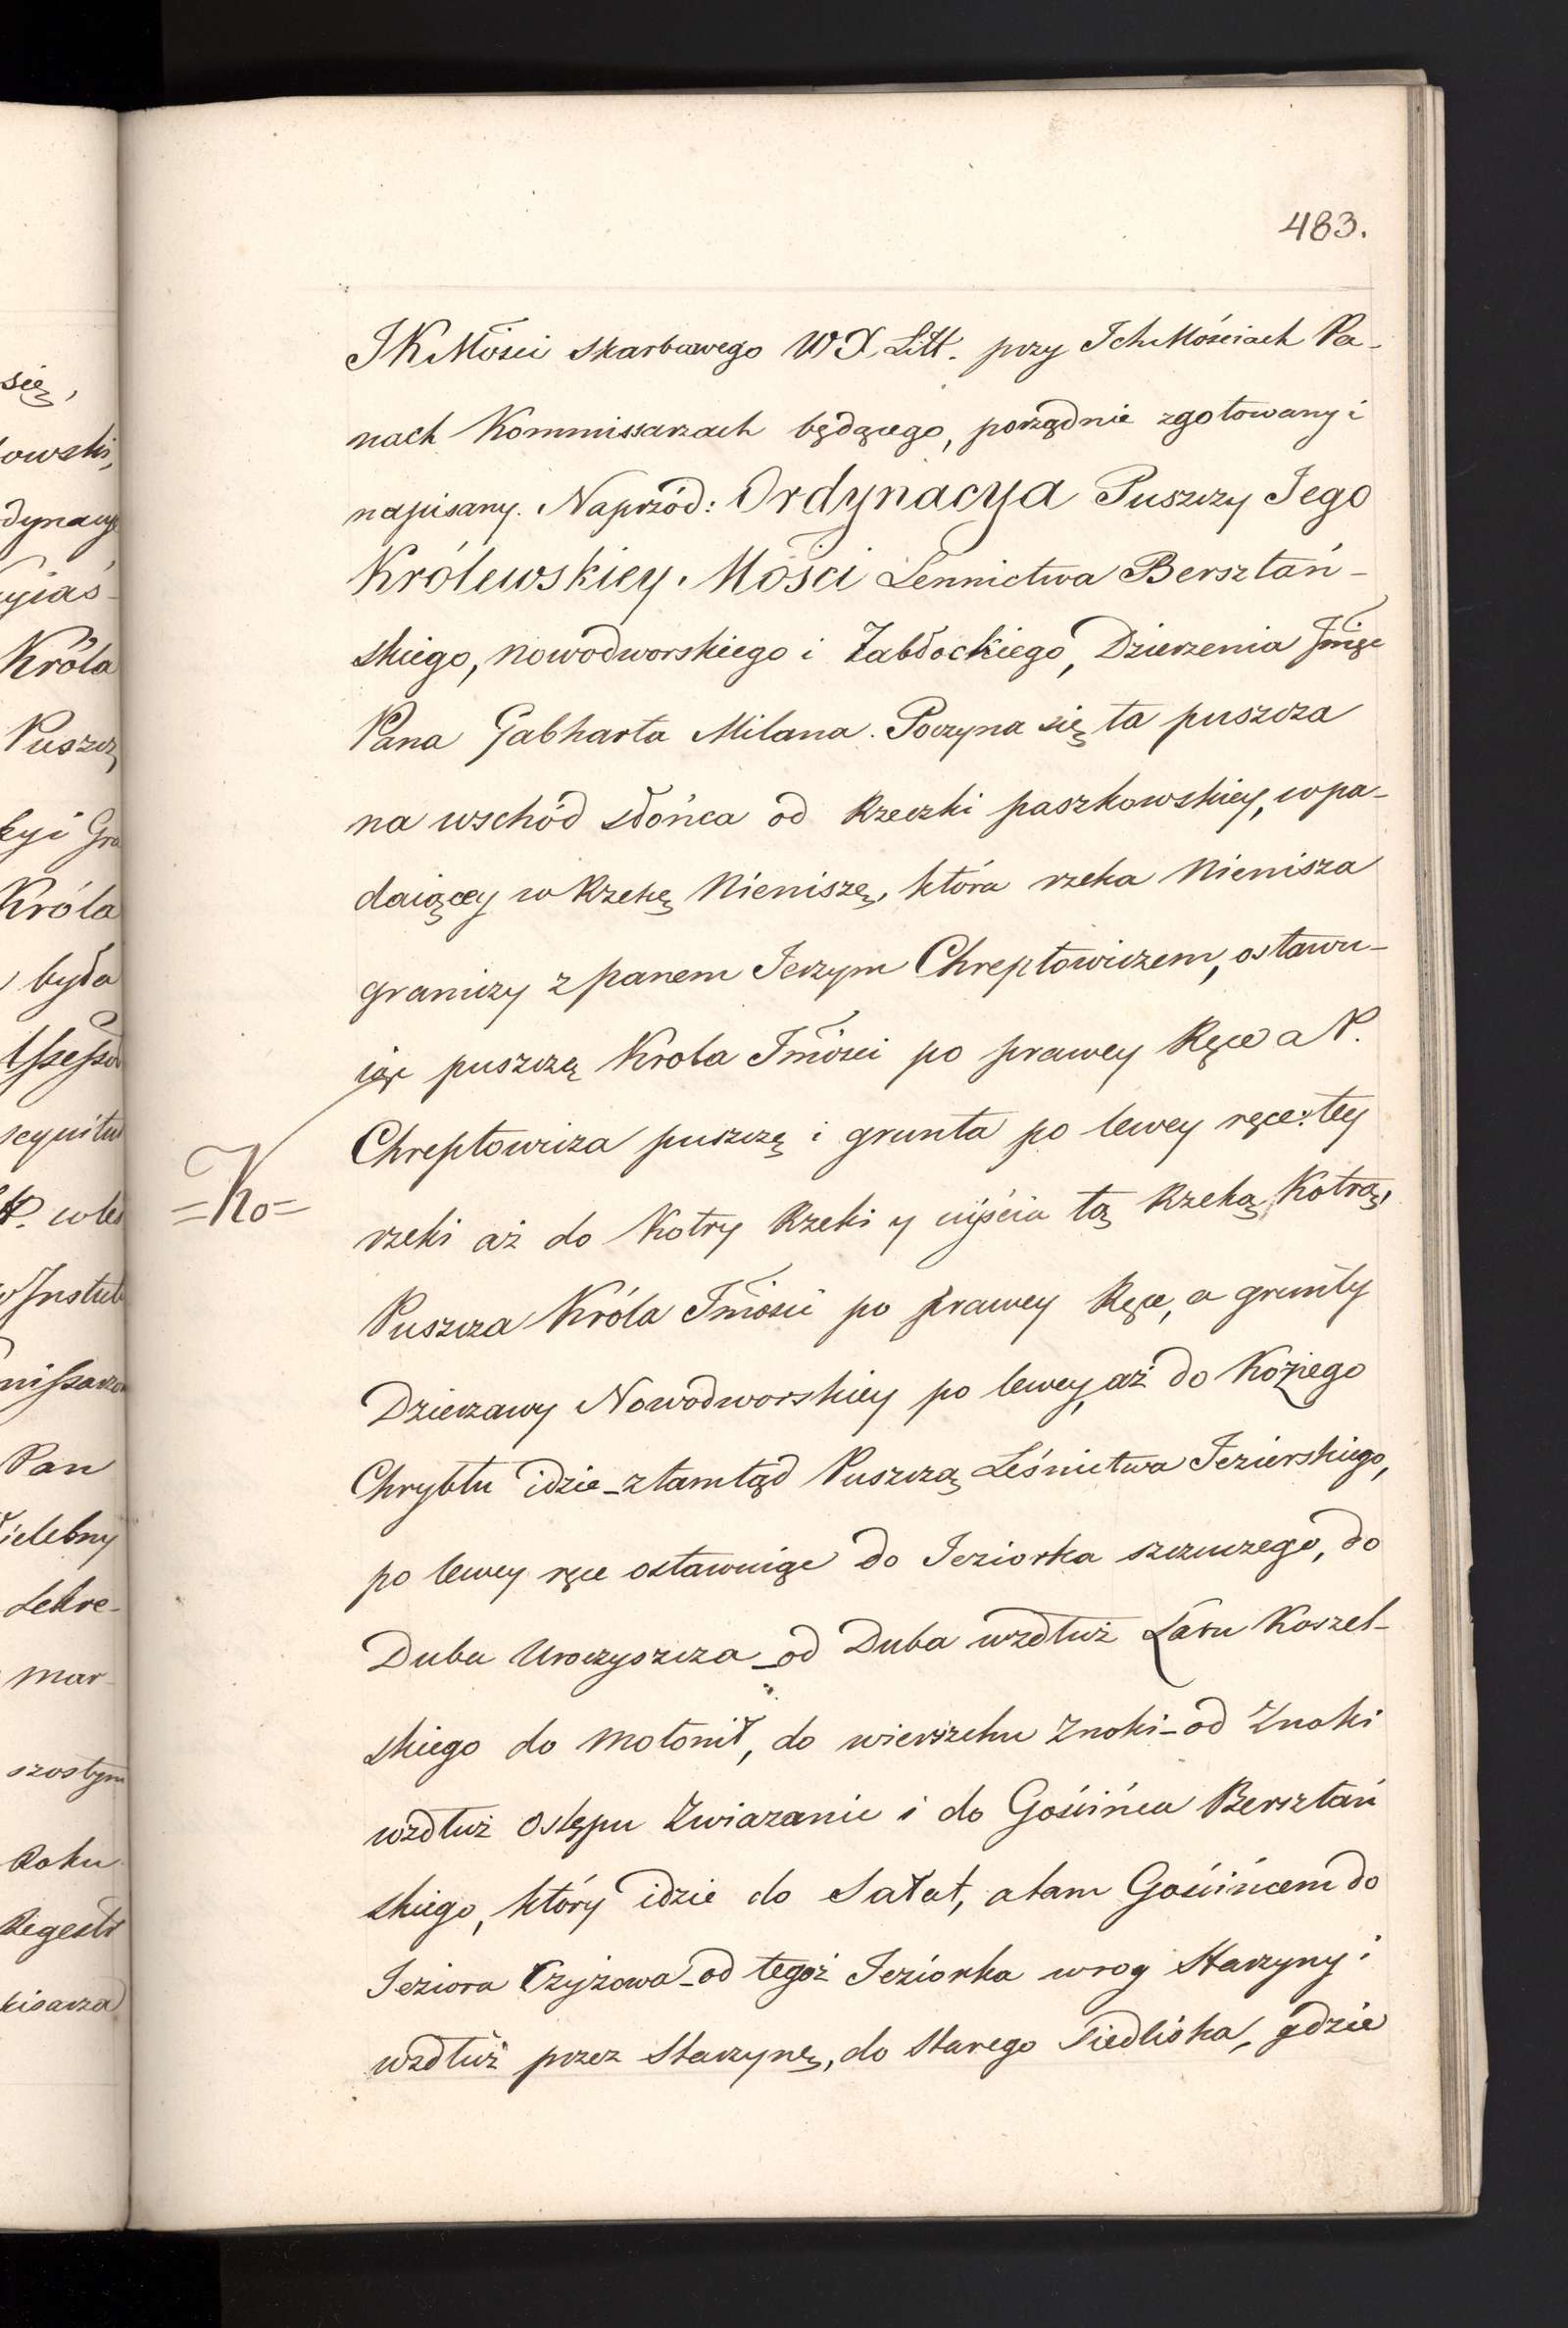 483.
JKMości skarbowego WX. Litt. przy Ich Mościach Pa-
nach Kommissarzach będącego, porządnie zgotowany i
napisany. Naprzód: Ordynacya Puszczy Jego
Królewskiey Mości Lennictwa Bersztań-
skiego, nowodworskiego i Zabłockiego, Dzierzenia Jmię
Pana Gabharta Milana. Poczyna się ta puszcza
na wschód słońca od Rzeczki paszkowskiey, wpa-
daiącey w Rzekę Nieniszę, która rzeka Nienisza
graniczy z panem Jerzym Chreptowiczem, ostawu-
iąc puszczą Krola Jmości po prawey Ręce a P.
Chreptowicza puszczę i grunta po lewey ręce: tey
=Ko=
rzeki aż do Kotry Rzeki y uyścia tą Rzeką Kotrą,
Puszcza Króla Jmości po prawey Ręce, a grunty
Dzierzawy Nowodworskiey po lewey, aż do Koziego
Chrybtu idzie_ztamtąd Puszczą Leśnictwa Jezierskiego,
po lewey ręce ostawuiąc do Jeziorka szczuczego, do
Duba Uroczyszcza_od Duba wzdłuż Lasu Koszel-
skiego do Motonił, do wierzchu Znoki_od Znoki
wzdłuż Ostępu Zwiazanie i do Gościńca Bersztań
skiego, który idzie do Sałat, a tam Gościńcem do
Jeziora Czyżowa_od tegoż Jeziorka w rog Starzyny i
wzdłuż przez Starzynę, do starego Siedliska, gdzie
się,
owski,
Króla
Puszcz
Króla
była
Pan
ielebny
mar-
szostym
Roku
Regestr